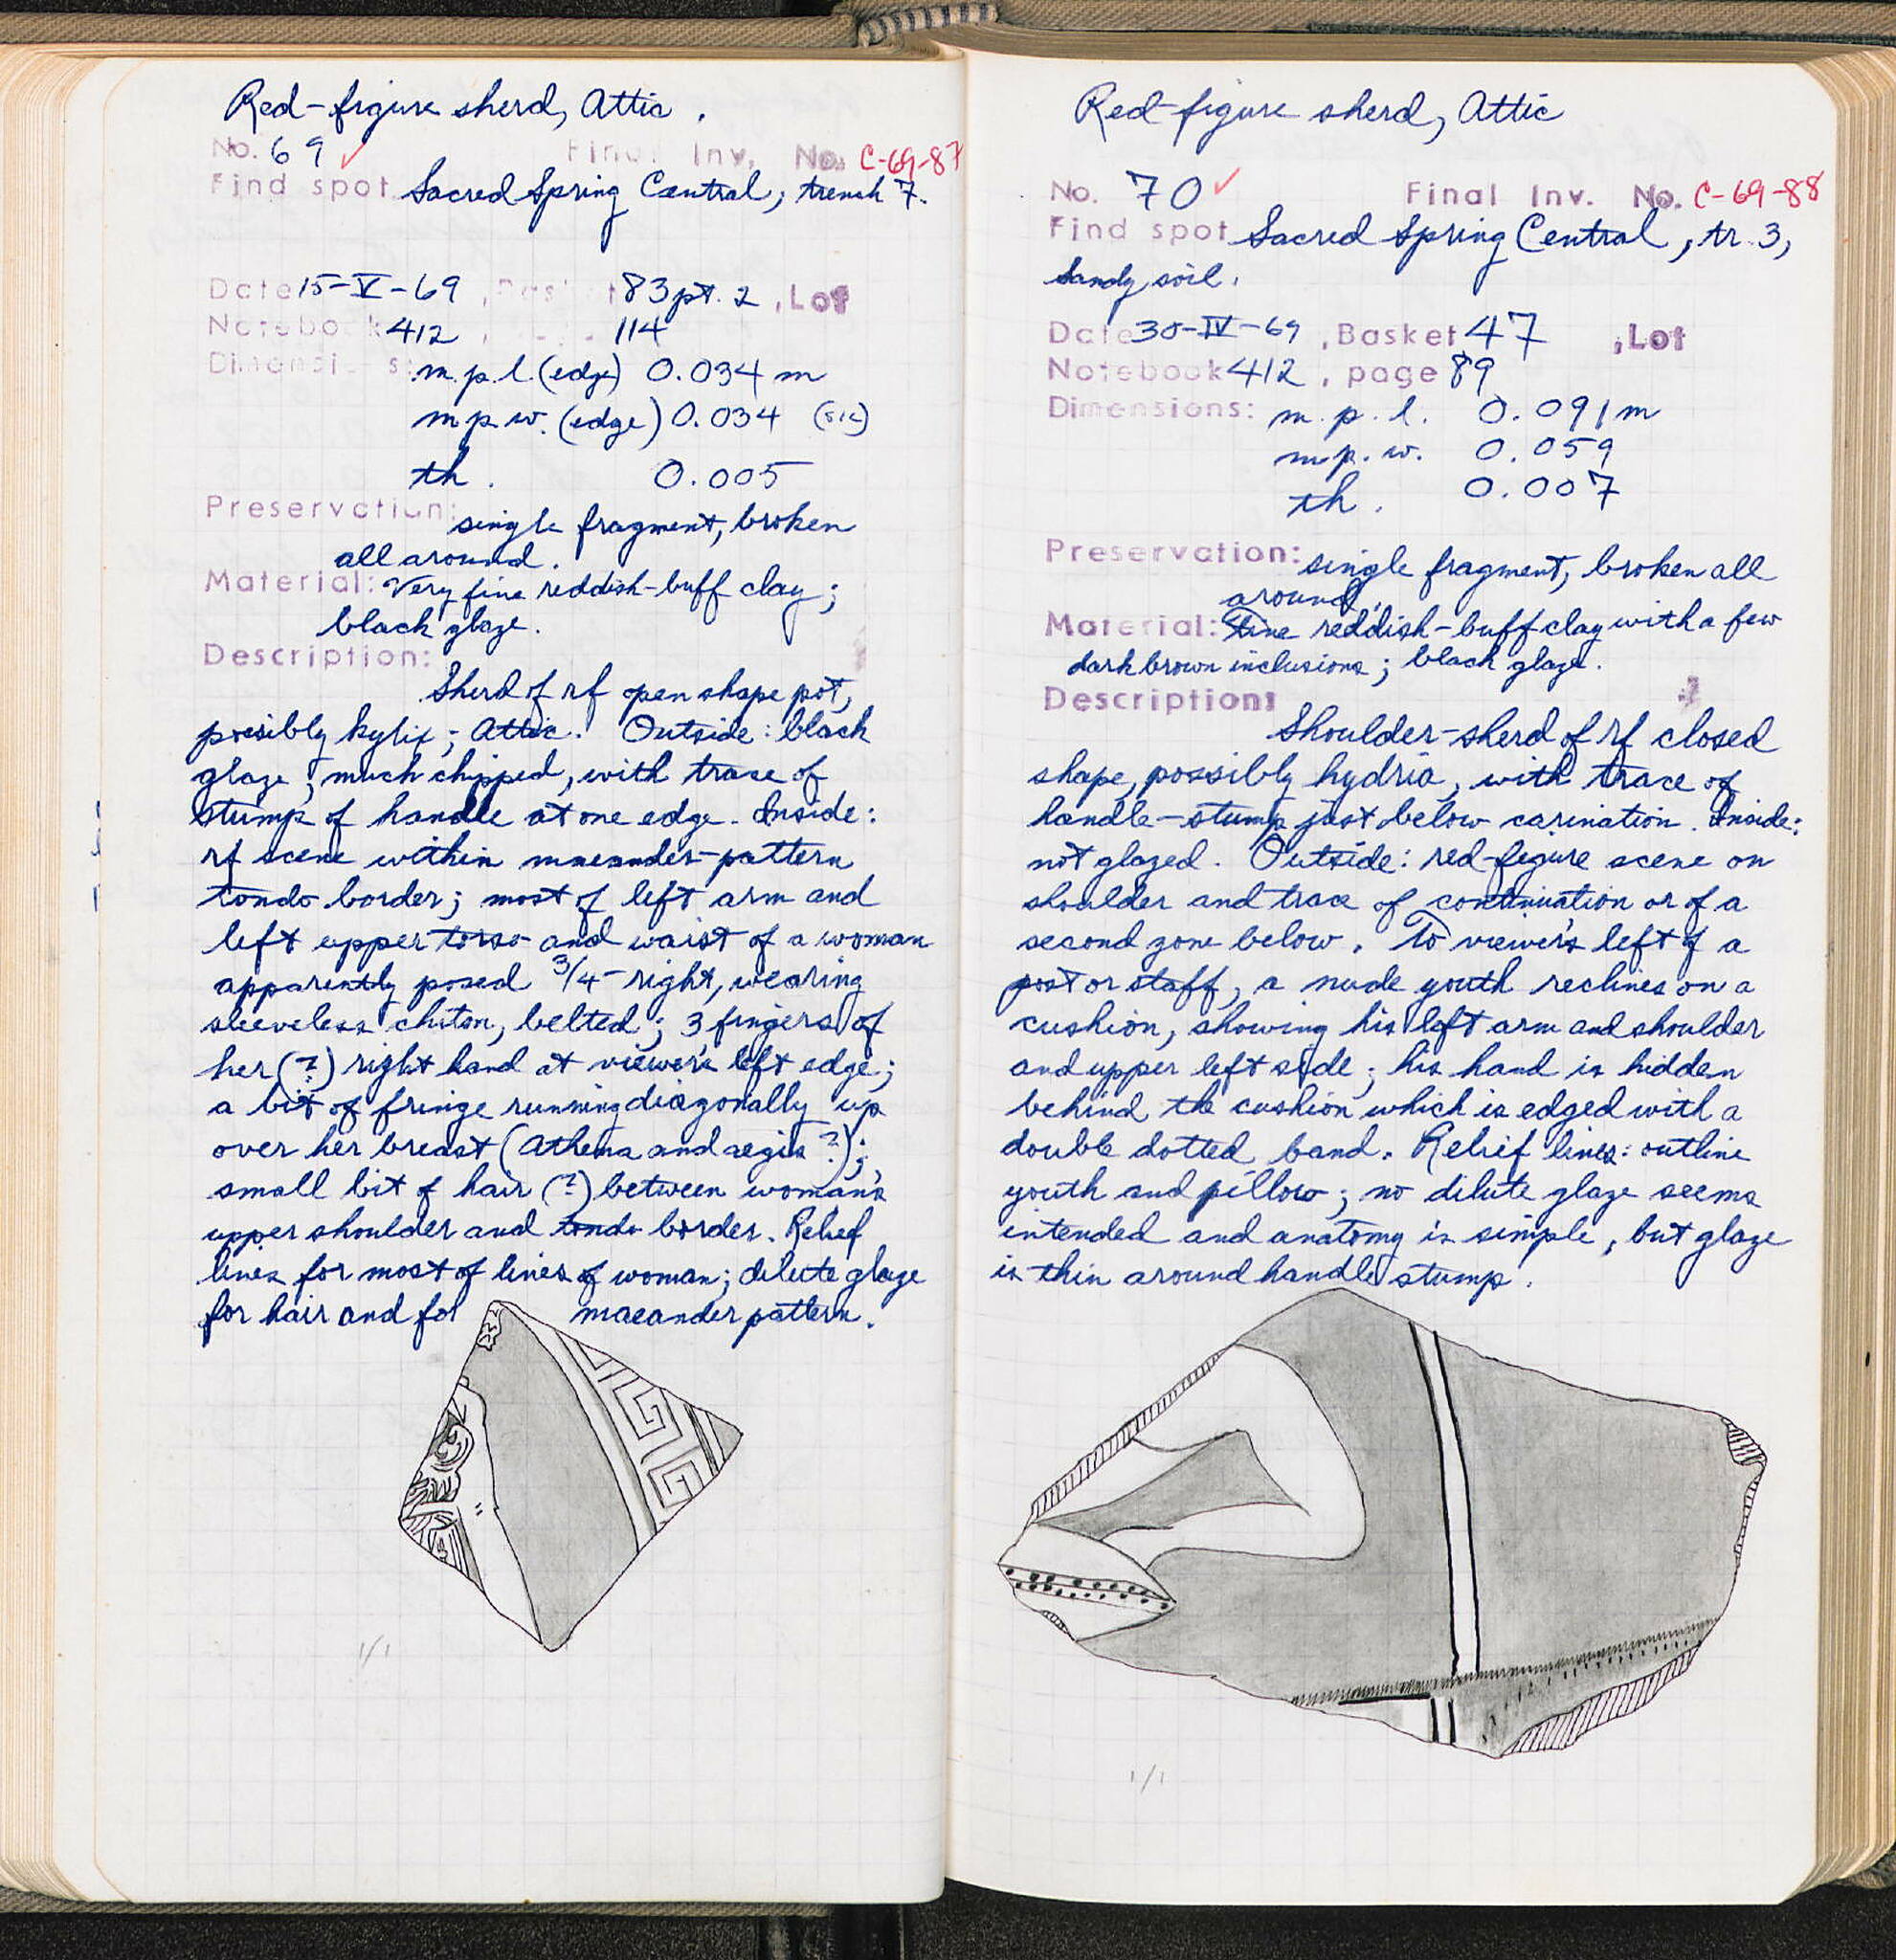 Red-figure sherd, Attic.
No. 69 ✓ Final Inv. No. C-69-87
Find spot Sacred Spring Central, trench 7.
Date 15-V-69, Basket 83 pt. 2, Lot
Notebook 412, 114
Dimensions: m.p.l. (edge) 0.034 m
m.p.w. (edge) 0.034 (sic)
th. 0.005
Preservation: single fragment, broken
all around.
Material: Very fine reddish-buff clay;
black glaze.
Description:
Sherd of rf open shape pot,
possibly kylix; Attic. Outside: black
glaze, much chipped, with trace of
stump of handle at one edge. Inside:
rf scene within maeander-pattern
tondo border; most of left arm and
left upper torso and waist of a woman
apparently posed 3/4-right, wearing
sleeveless chiton, belted; 3 fingers of
her (?) right hand at viewer's left edge;
a bit of fringe running diagonally up
over her breast (Athena and aegis?);
small bit of hair (?) between woman's
upper shoulder and tondo border. Relief
lines for most of lines of woman; dilute glaze
for hair and for maeander pattern.
1/1
Red-figure sherd, Attic
No. 70 ✓ Final Inv. No. C-69-88
Find spot Sacred Spring Central, tr. 3,
sandy soil.
Date 30-IV-69, Basket 47, Lot
Notebook 412, page 89
Dimensions: m.p.l. 0.091 m
m.p.w. 0.059
th. 0.007
Preservation: single fragment, broken all
around.
Material: Fine reddish-buff clay with a few
dark brown inclusions; black glaze.
Description:
Shoulder-sherd of rf closed
shape, possibly hydria, with trace of
handle-stump just below carination. Inside:
not glazed. Outside: red-figure scene on
shoulder and trace of continuation or of a
second zone below. To viewer's left of a
post or staff, a nude youth reclines on a
cushion, showing his left arm and shoulder
and upper left side; his hand is hidden
behind the cushion which is edged with a
double dotted band. Relief lines: outline
youth and pillow; no dilute glaze seems
intended and anatomy is simple, but glaze
is thin around handle stump.
1/1